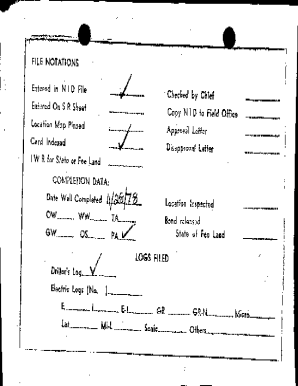 FILE NOTATIONS
Entered in NID File ✓ Checked by Chief
Entered On S R Sheet Copy NID to Field Office
Location Map Pinned Approval Letter
Card Indexed ✓ Disapproval Letter
I W R for State or Fee Land
COMPLETION DATA:
Date Well Completed 4/28/78 Location Inspected
OW WW TA Bond released
GW OS PA ✓ State of Fee Land
LOGS FILED
Driller's Log ✓
Electric Logs (No. )
E I E-I GR GR-N Micro
Lat Mi-L Sonic Others